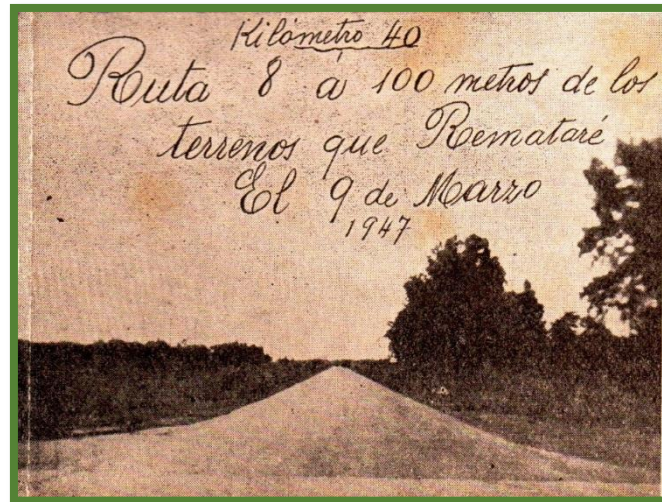 Kilómetro 40
Ruta 8 á 100 metros de los
terrenos que Remataré
El 9 de Marzo
1947